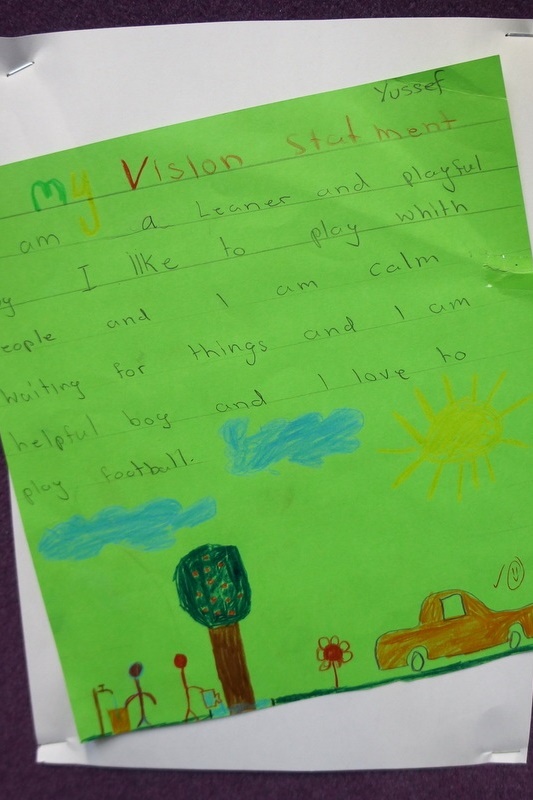 Yussef
my Vision Statment
am a Leaner and playful
y I like to play whith
eople and I am calm
waiting for things and I am
helpful boy and I love to
play football.